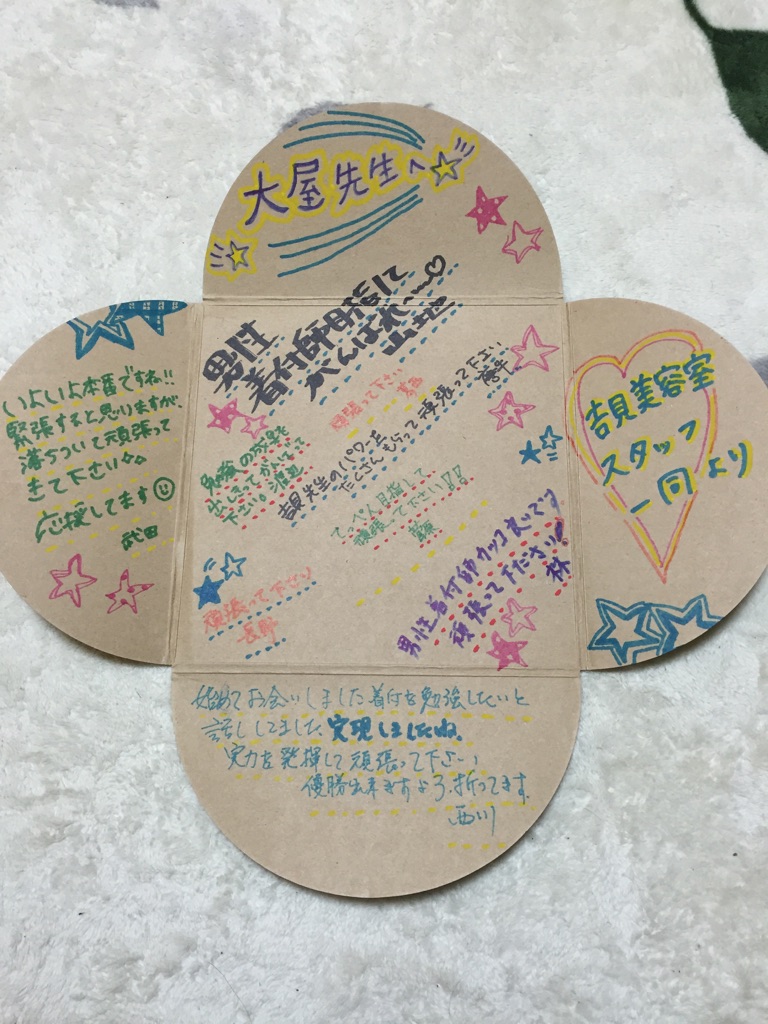 大屋先生へ
男性
着付師目指して
がんばれ〜♡
山地
頑張って下さい
葛西
吉見先生のパワーを
たくさんもらって頑張って下さい
勉強の成果を
出しきってがんばって
下さい。渡辺
てっぺん目指して
頑張って下さい!!
頑張って下さい
長野
男性着付師カッコ良いです
頑張って下ださい!
林
いよいよ本番ですね!!
緊張すると思りますが、
落ちついて頑張って
きて下さい
応援してます☺
武田
吉見美容室
スタッフ
一同より
始めてお会いしました着付を勉強したいと
話ししてました 実現しましたね。
実力を発揮して頑張って下さい
優勝出来ますよう祈ってます。
西川